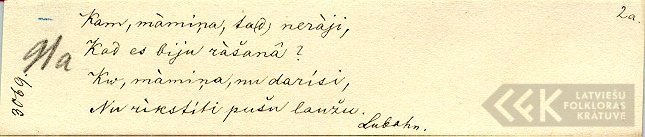 2a.
Kam, māmiņa, ta(d) nerāji,
91a
Kad es biju rāšanā?
3069.
Kw, māmiņa, nu darīsi,
Nu rīkstīti pušu laužu.
Lubahn.
LATVIEŠU
FOLKLORAS
KRĀTUVE